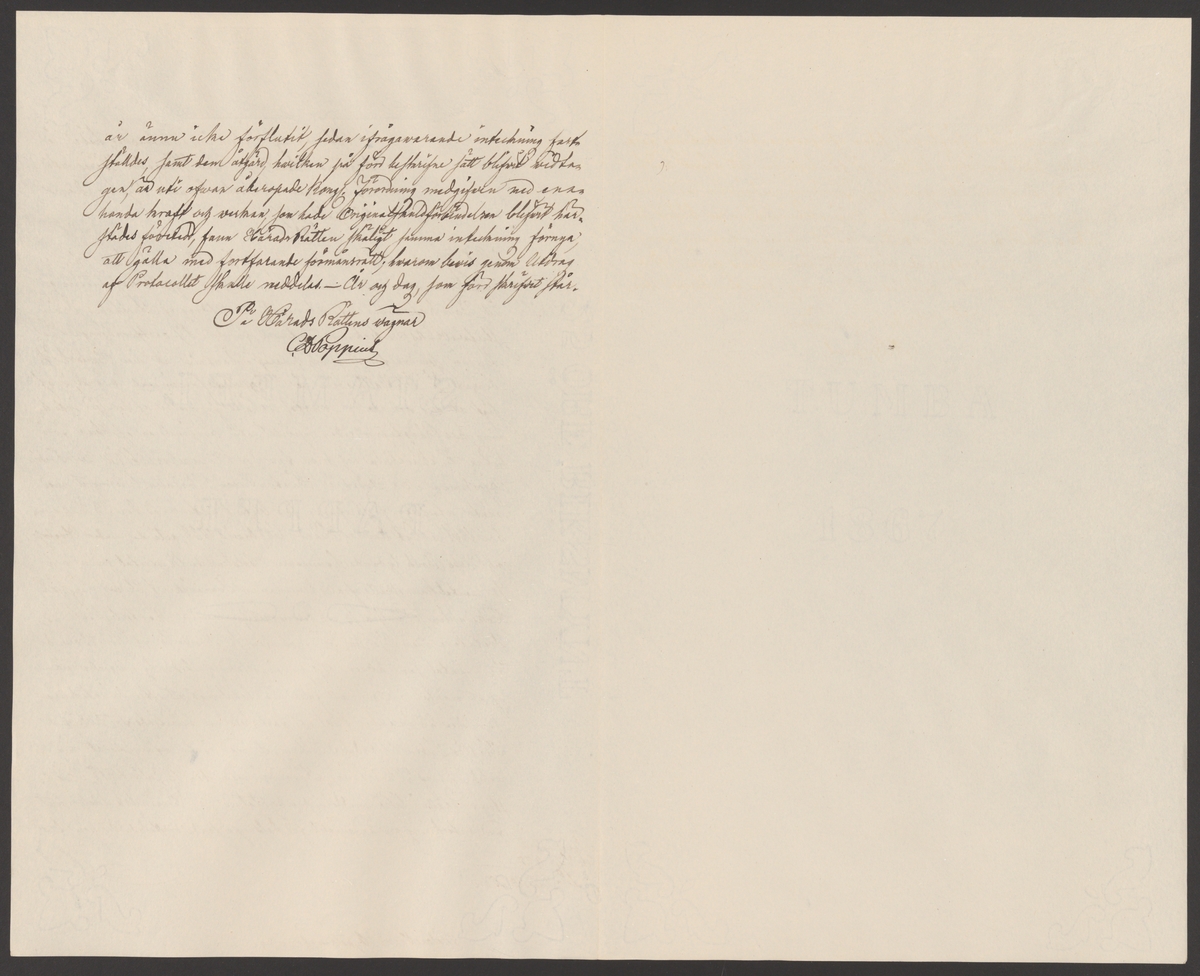 år ännu icke förflutit, sedan ifrågawarande inteckning fast-
ställdes, samt dem åtgärd, hwilken på först beskrifne sätt blifwit widta-
gen, är uti ofwan åberopade Kongl. Förordning medgifwen med enn-
handa kraft och werkan, som hade Originalskuldförbindelsen blifwit här-
städes företedd, fann HäradsRätten skäligt samma inteckning förnya,
att gälla med fortfarande förmånsrätt; hwarom bewis genom Utdrag
af Protocollet skulle meddelas. — År och dag, som förr skrifwet står.
På Härads Rättens wägnar
Poppius